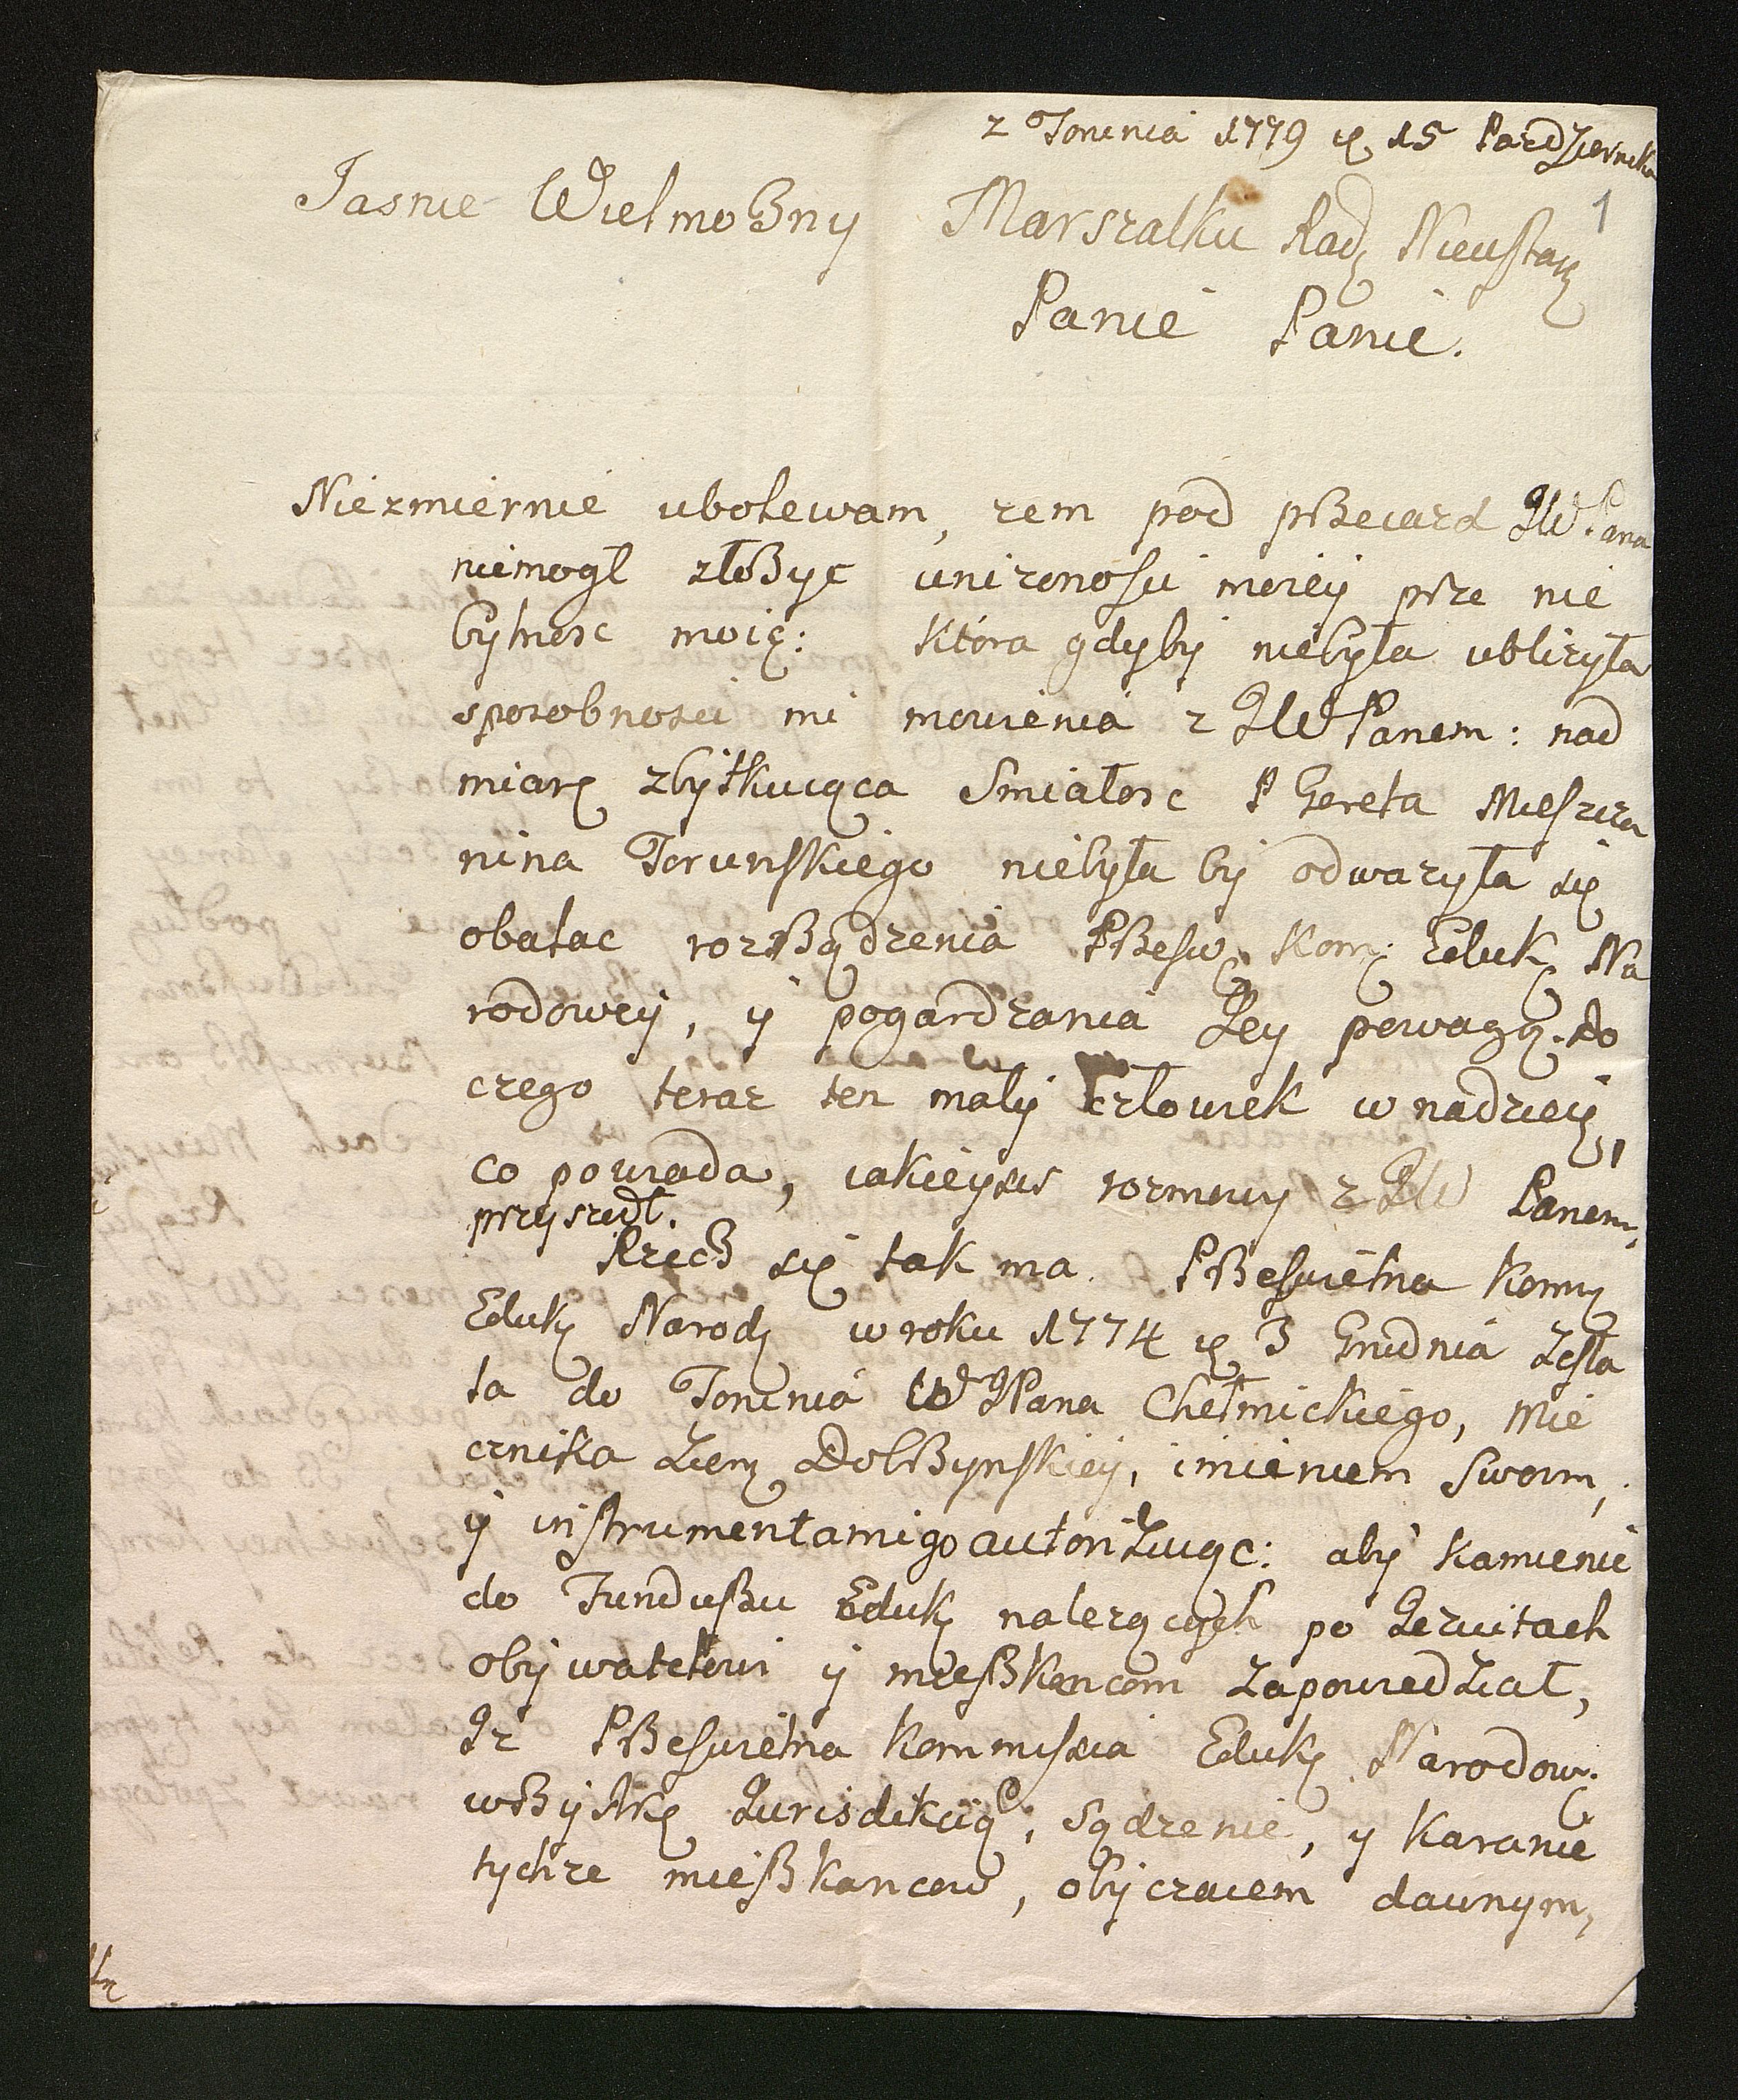 z Torunia 1779 g 15 Pazdziernika
1
Jasnie Wielmożny Marszalku Rady Nieustaię
Panie Panie.
Niezmiernie ubolewam, zem pod przeiazd JW Pana
niemogł złożyc unizonosci moiey prze nie
bytnosc moię: Która gdyby niebyła ubliżyła
sposobnosci mi mowienia z JW Panem: nad
miarę zbytkuiąca Smiałosc P Gereta Mieszcza
nina Torunskiego niebyła by odwazyła się
obalac rozsządzenia Przesw. Kom: Eduk. Na
rodowey, y pogardzania Jey powagą. do
czego teraz ten mały człowiek w nadzieię,
co powiada, iakieysis rozmowy z JW Panem,
przyszedł.
Rzecz się tak ma. Przeswietna Komię
Eduk. Narod. w roku 1774 g 3 Grudnia Zesła
ła do Torunia WJPana Chełmickiego, Mie
cznika Ziem. Dobrzynskiey, imieniem Swoim,
y instrumentami go autoriZuiąc: aby kamienic
do Funduszu Eduk. nalezących po Jezuitach
obywatelowi y mieszkancom Zapowiedział,
Jz Przeswietna Kommissia Eduk. Narodow.
wszystkę Jurisdikcią, sądzenie, y karanie
tychze mieszkancow, obyczaiem dawnym,